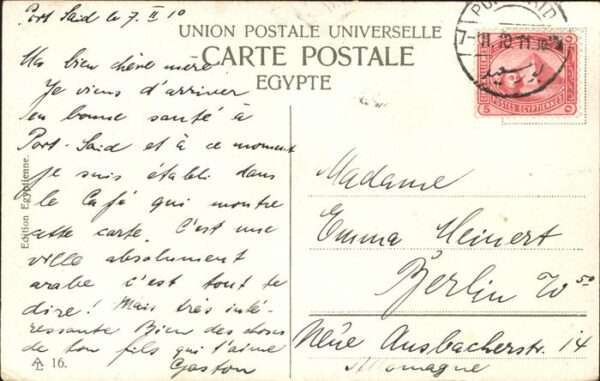 Port Said le 7. II 10
UNION POSTALE UNIVERSELLE
CARTE POSTALE
EGYPTE
Ma bien chère mère
Je viens d'arriver
en bonne santé à
Port-Saïd et à ce moment
je suis établi dans
le Café qui montre
cette carte. C'est une
ville absolument
arabe c'est tout te
dire! Mais très inté-
ressante Bien des choses
de ton fils qui t'aime
Gaston
Edition Egyptienne.
16.
PORT SAID
7-II.10 11
POSTES EGYPTIENNES
5
Madame
Emma Meinert
Berlin W 50
Neue Ansbacherstr. 14
Allemagne